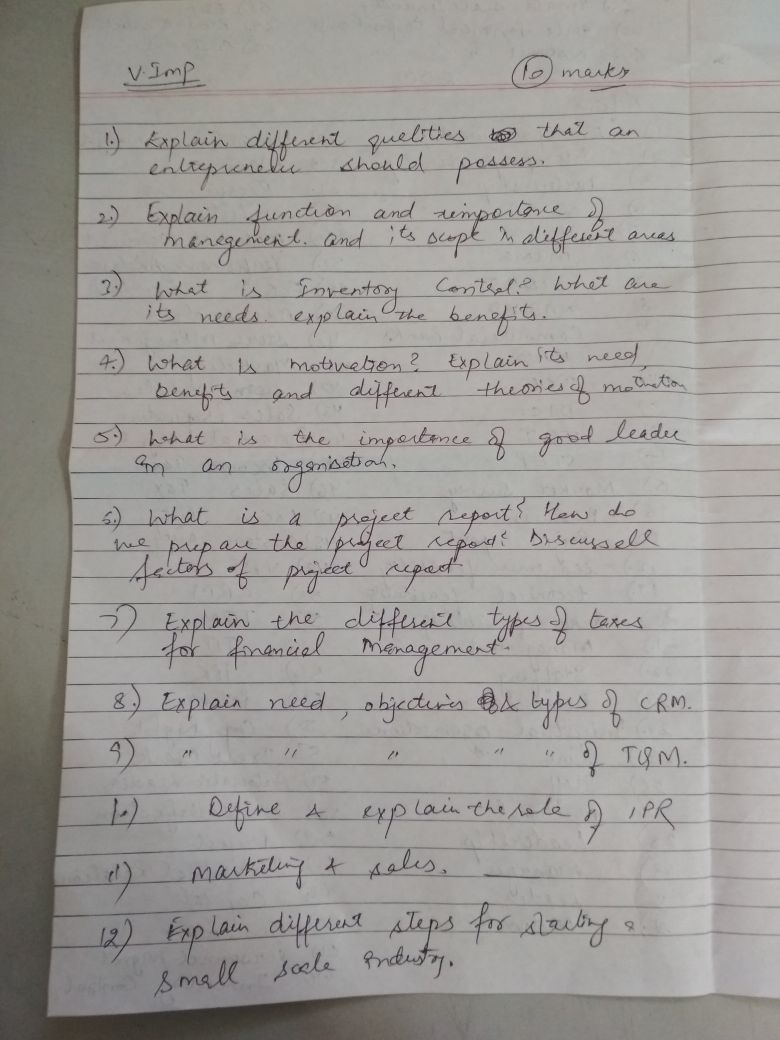 V. Imp
10 marks
1.) Explain different quelities that an
entrepreneur should possess.
2.) Explain function and importance of
management. and its scope in different areas
3.) What is Inventory Control? What are
its needs. explain the benefits.
4.) What is motivation? Explain its need,
benefits and different theories of motivation
5.) What is the importance of good leader
in an organisation.
6.) What is a project report? How do
we prepare the project report? Discuss all
factors of project report
7) Explain the different types of taxes
for financial management.
8.) Explain need, objectives & types of CRM.
9) " " " " " of TQM.
10.) Define & explain the role of IPR
11) Marketing & sales.
12) Explain different steps for starting a
small scale industry.